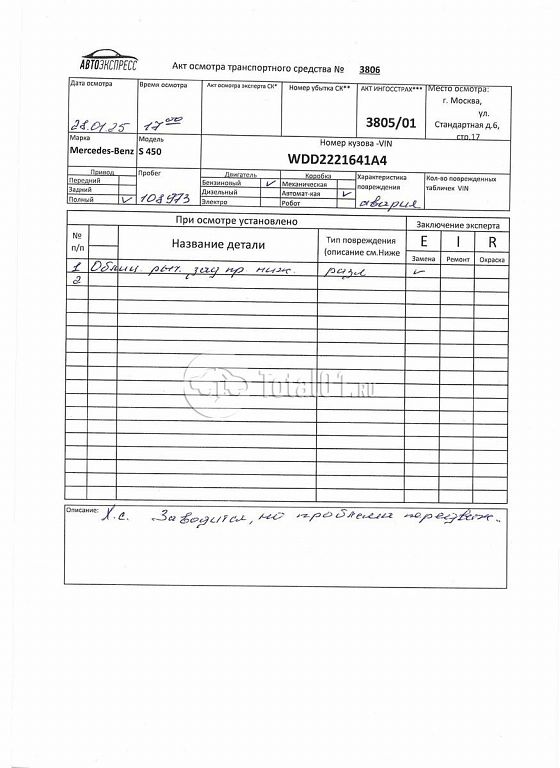 АВТОЭКСПРЕСС
Акт осмотра транспортного средства № 3806
Дата осмотра
28.01.25
Время осмотра
17 00
Акт осмотра эксперта СК*
Номер убытка СК**
АКТ ИНГОССТРАХ***
3805/01
Место осмотра:
г. Москва,
ул.
Стандартная д.6,
стр.17
Марка
Mercedes-Benz
Модель
S 450
Номер кузова -VIN
WDD2221641A4
Привод
Передний
Задний
Полный
Пробег
108973
Двигатель
Бензиновый
Дизельный
Электро
Коробка
Механическая
Автомат-кая
Робот
Характеристика
повреждения
авария
Кол-во поврежденных
табличек VIN
При осмотре установлено
Заключение эксперта
№
п/п
Название детали
Тип повреждения
(описание см.Ниже
E I R
Замена Ремонт Окраска
1 Облиц. рыч. зад пр ниж. разл
2
Total01.RU
Описание: Х.с. Заводится, но проблема передвиж.